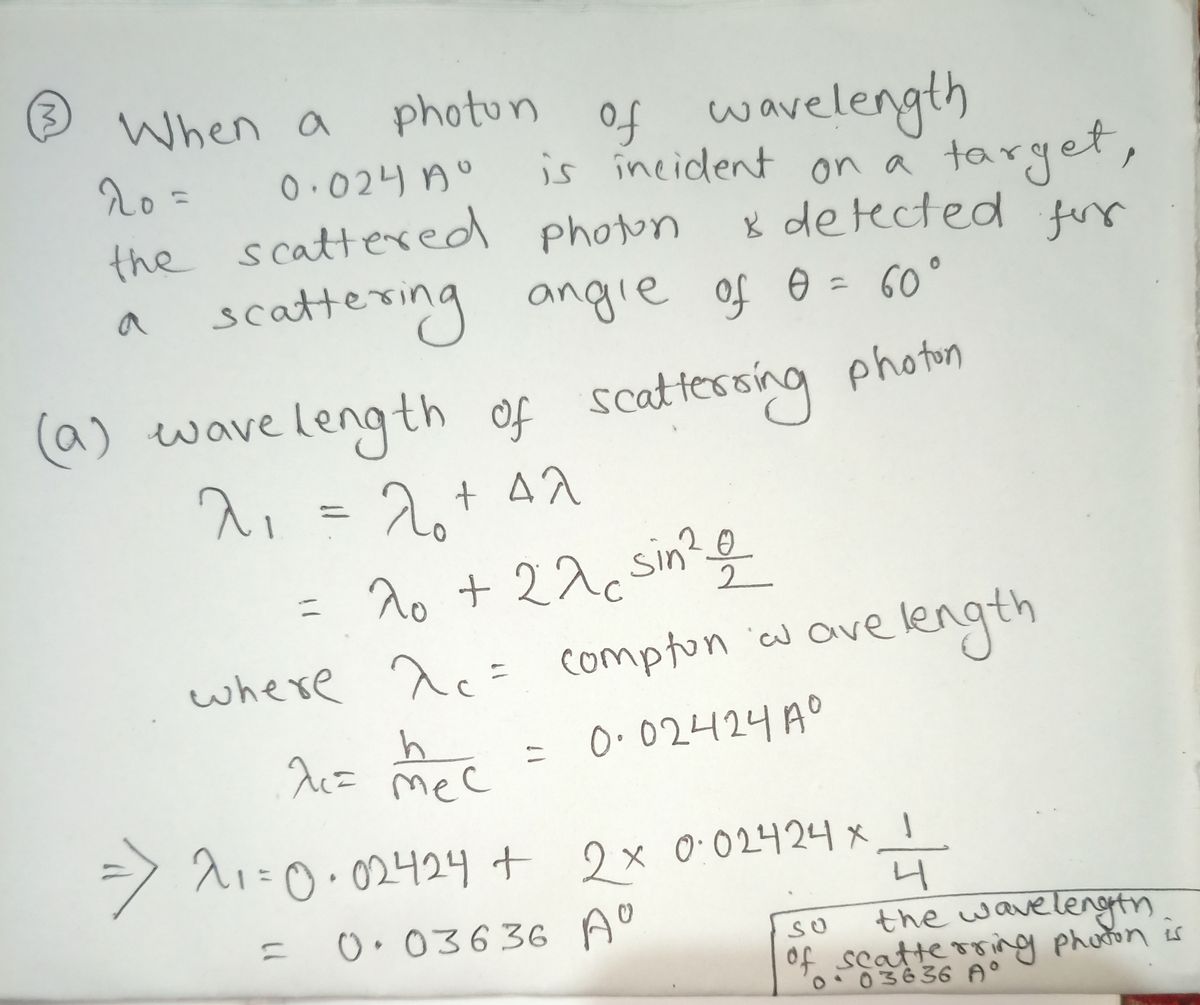 ③ When a photon of wavelength
λ₀ = 0.024 A° is incident on a target,
the scattered photon is detected for
a scattering angle of θ = 60°
(a) wavelength of scattersring photon
λ₁ = λ₀ + Δλ
= λ₀ + 2λc sin² θ/2
where λc = compton wavelength
λc = h/mec = 0.02424 A°
=> λ₁ = 0.02424 + 2 x 0.02424 x 1/4
= 0.03636 A°
so the wavelength
of scatterring photon is
0.03636 A°